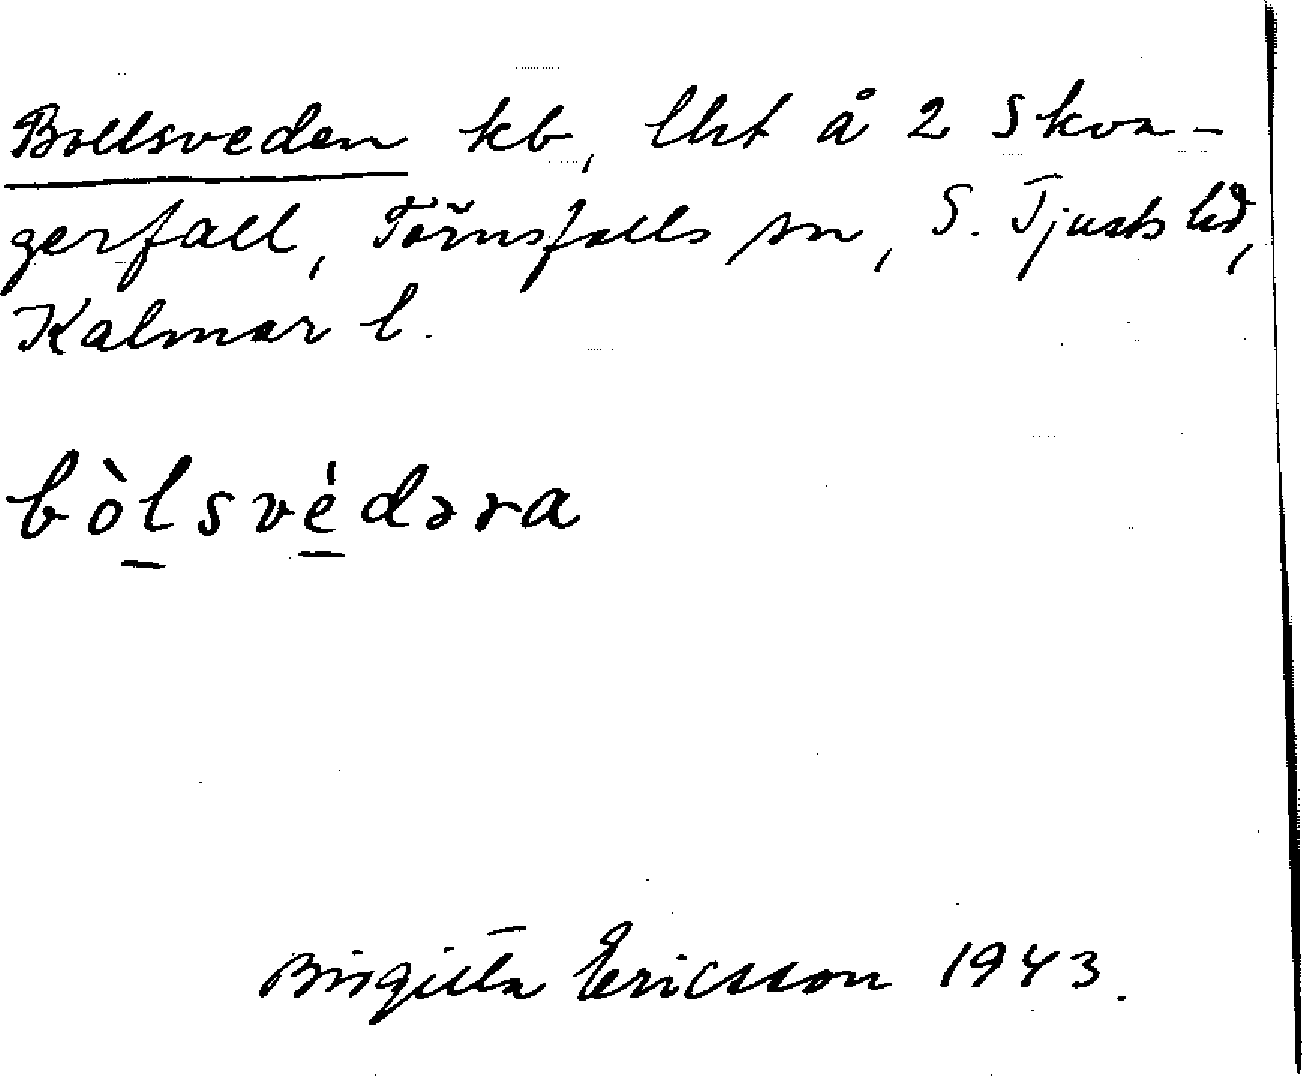 Bollsveden kb, lht å 2 Skva-
gerfall, Törnsfalls sn, S. Tjusts hd,
Kalmar l.
bòlsvédəra
Birgitta Ericsson 1943.